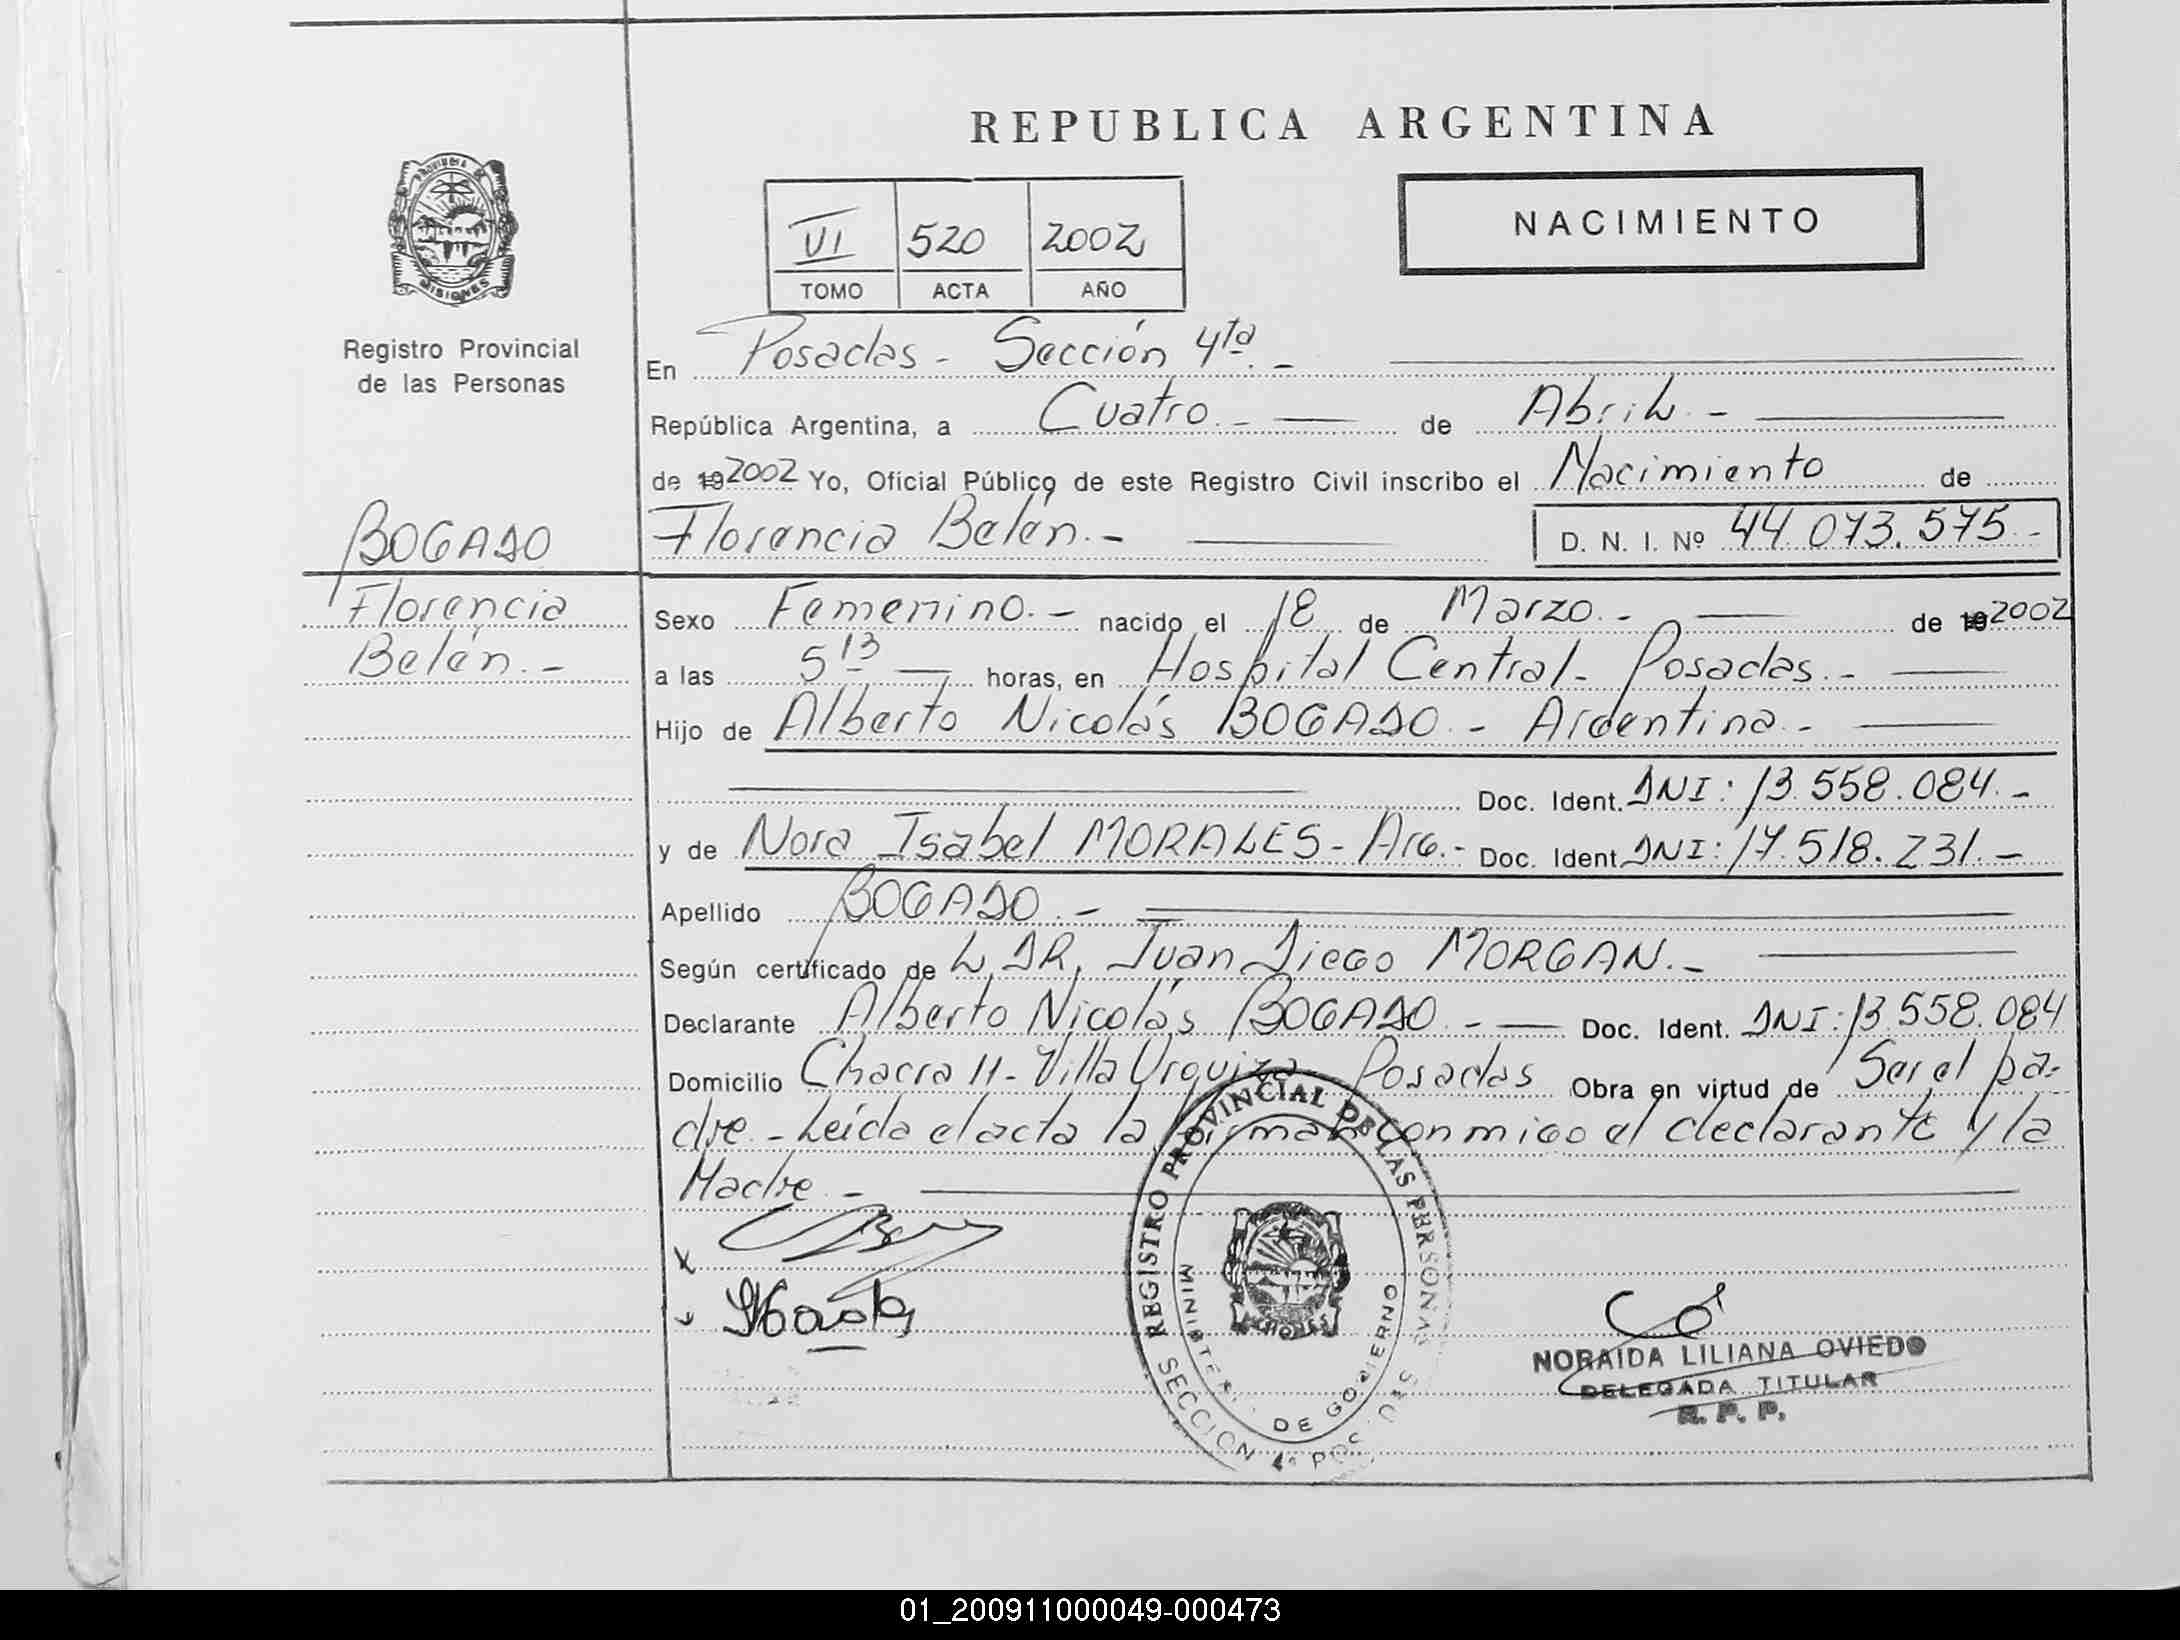 REPUBLICA ARGENTINA
PROVINCIA DE
MISIONES
Registro Provincial
de las Personas
VI 520 2002
TOMO ACTA AÑO
NACIMIENTO
En Posadas - Sección 4ta. -
República Argentina, a Cuatro. - de Abril -
de 19 2002 Yo, Oficial Público de este Registro Civil inscribo el Nacimiento de
Florencia Belén. - D. N. I. Nº 44 073. 575 -
BOGADO
Florencia
Belén. -
Sexo Femenino. - nacido el 18 de Marzo. - de 19 2002
a las 5 13 horas, en Hospital Central - Posadas. -
Hijo de Alberto Nicolás BOGADO. - Argentina -
Doc. Ident. DNI: 13.558.084. -
y de Nora Isabel MORALES - Arg. - Doc. Ident. DNI: 17.518.231. -
Apellido BOGADO. -
Según certificado de L. DR. Juan Diego MORGAN. -
Declarante Alberto Nicolás BOGADO - Doc. Ident. DNI: 13.558.084
Domicilio Chacra 11 - Villa Urquiza - Posadas Obra en virtud de Ser el pa-
dre - Leída el acta la firman conmigo el declarante y la
Madre -
REGISTRO PROVINCIAL DE LAS PERSONAS
MINISTERIO DE GOBIERNO
SECCION 4ª POSADAS
MISIONES
NORAIDA LILIANA OVIEDO
DELEGADA TITULAR
R. P. P.
01_200911000049-000473